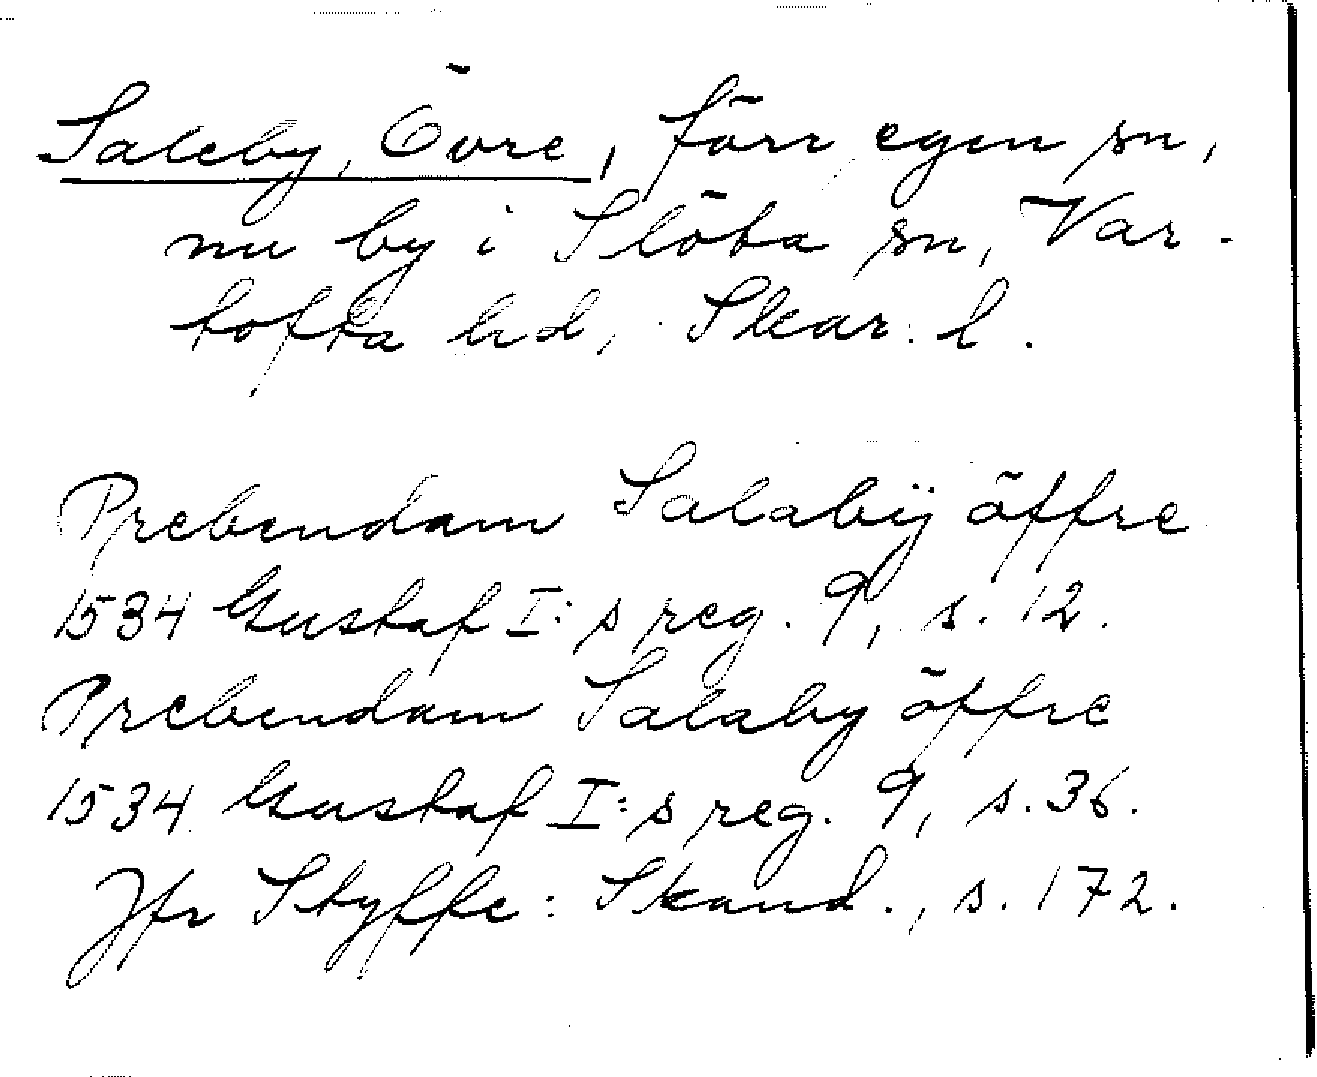 Saleby, Övre, förr egen sn,
nu by i Slöta sn, Var-
tofta hd, Skar. l.
Prebendam Salabÿ öffre
1534 Gustaf I:s reg. 9, s. 12.
Prebendam Salaby öffre
1534 Gustaf I:s reg. 9, s. 36.
Jfr Styffe: Skand., s. 172.